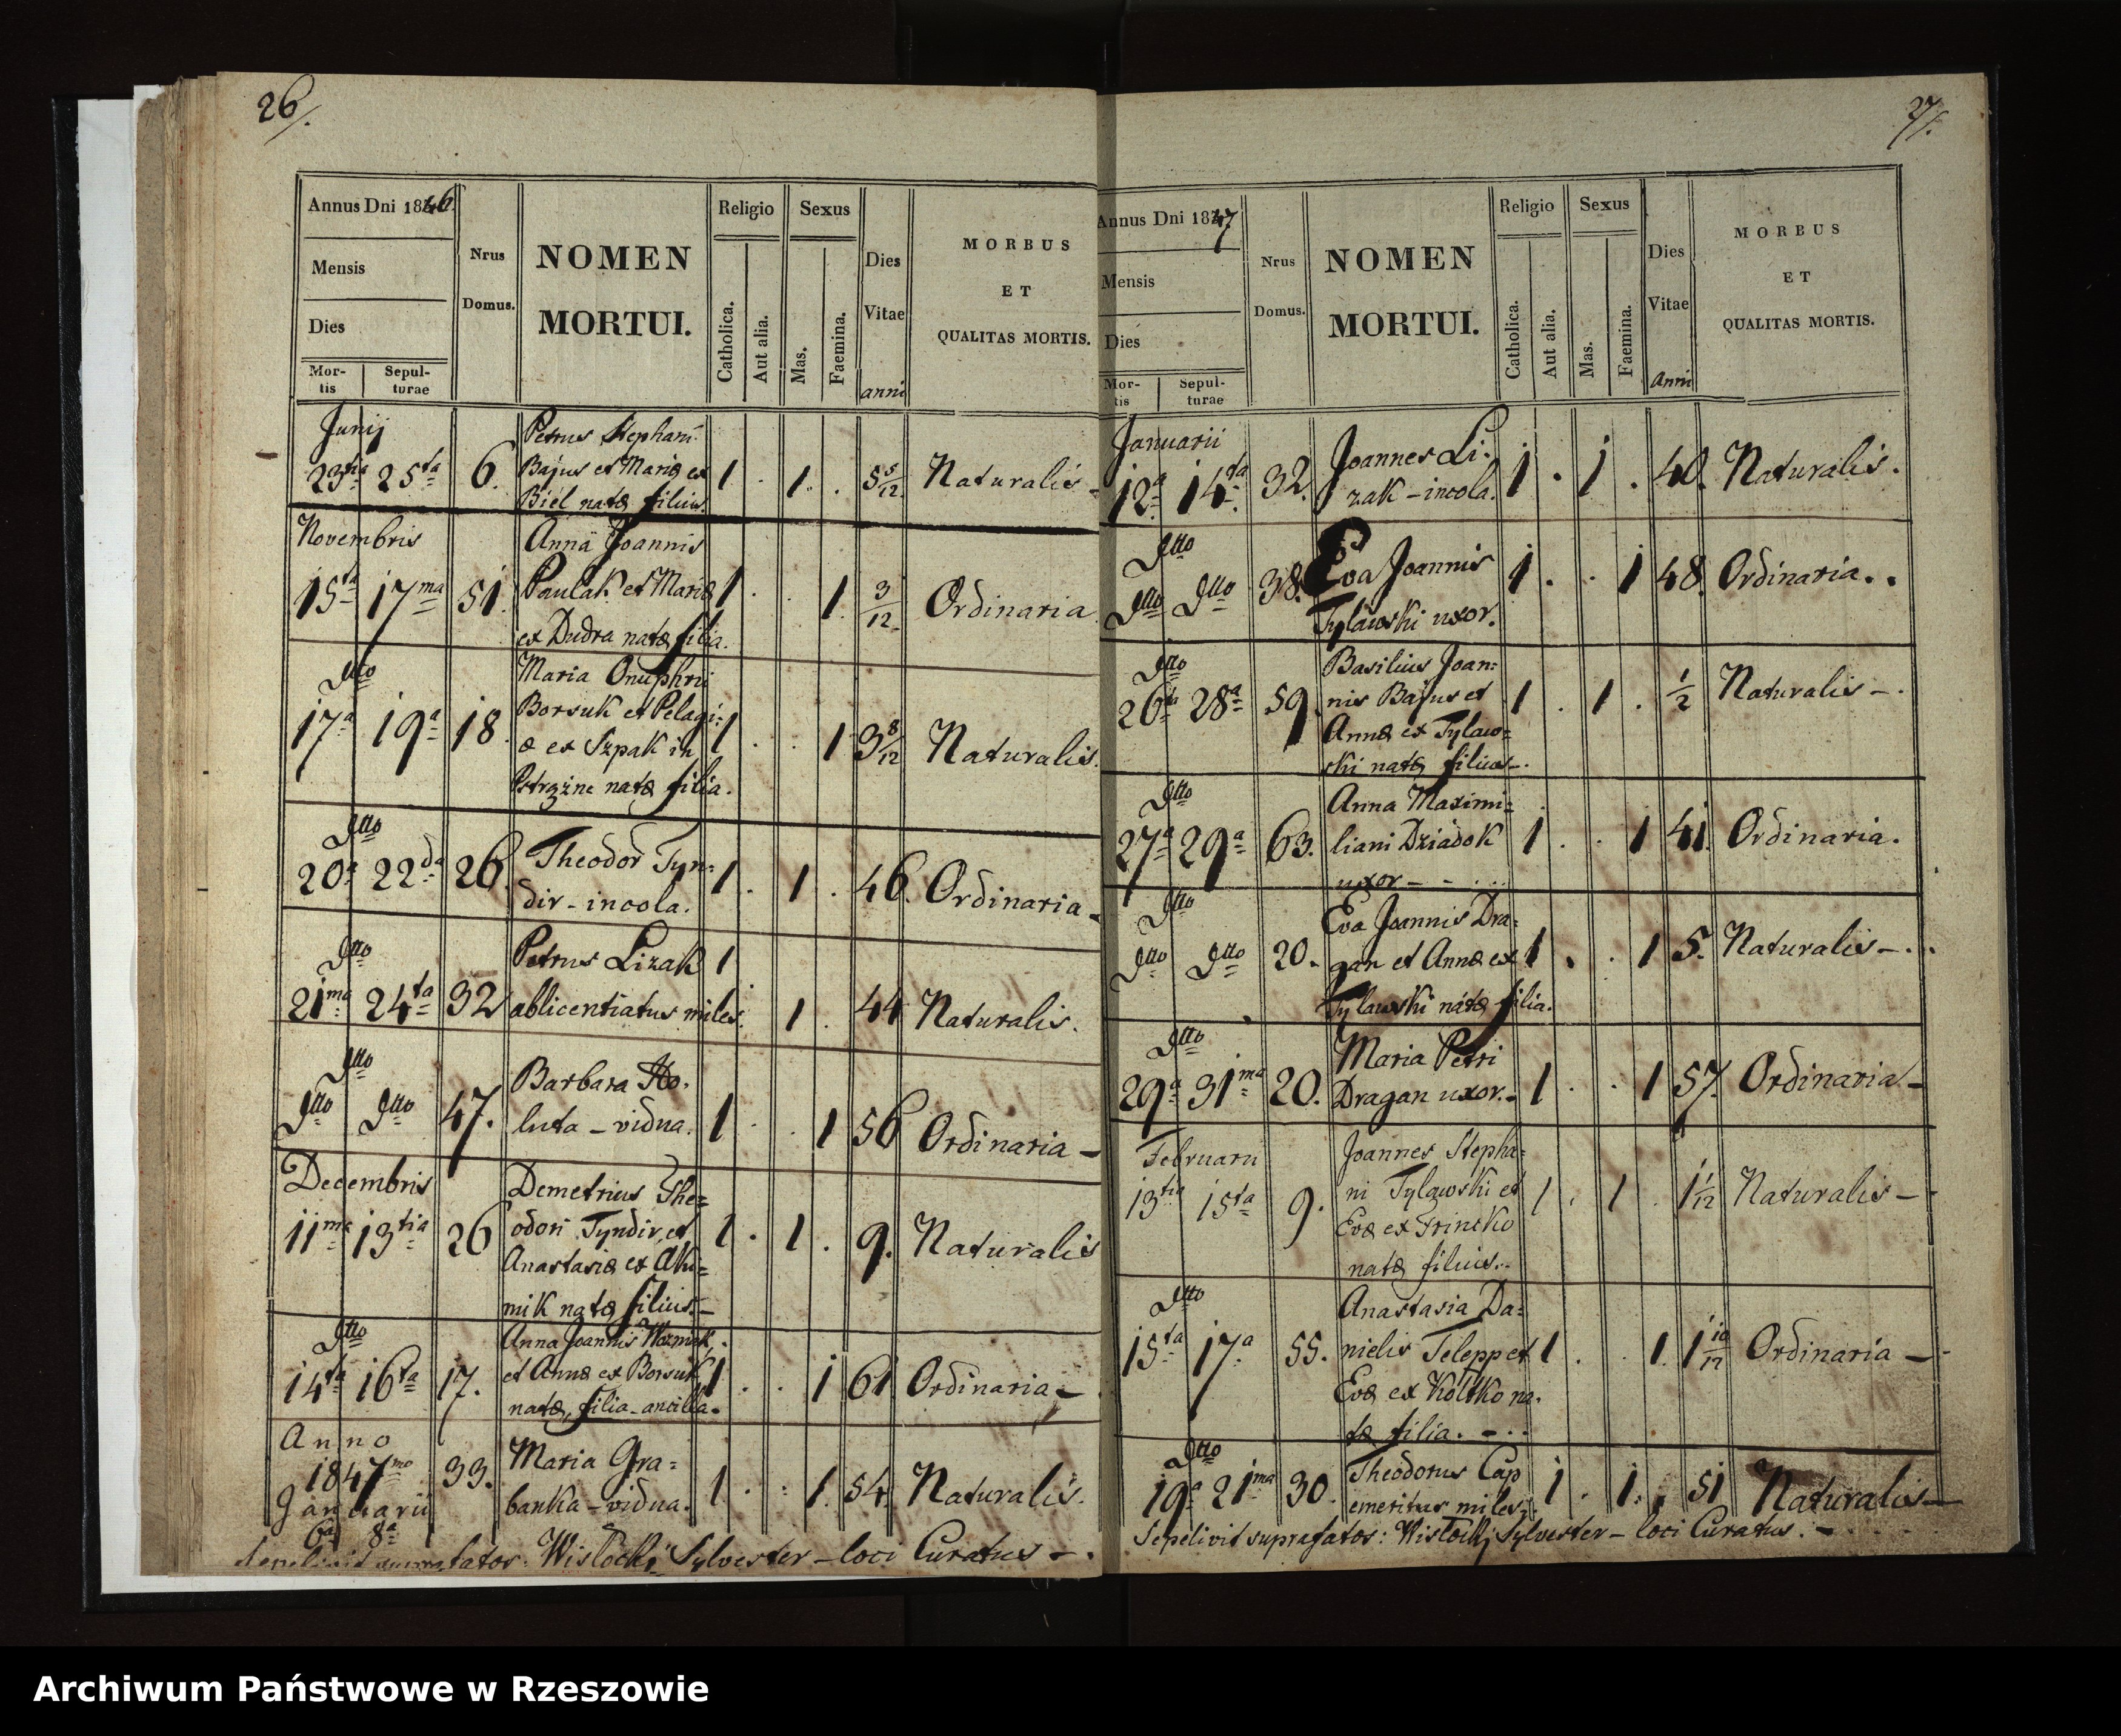 26/.
Annus Dni 1846.
Mensis
Dies
Mor-
tis
Sepul-
turae
Nrus
Domus.
NOMEN
MORTUI.
Religio
Catholica.
Aut alia.
Sexus
Mas.
Faemina.
Dies
Vitae
anni
MORBUS
ET
QUALITAS MORTIS.
Junij
Petrus Stephani
23tia 25ta 6. Bajus et Mariæ ex 1 . 1 . 5 5/12 Naturalis -
Biel natæ filius.
Novembris
Anna Joannis
15ta 17ma 51. Paulak et Mariæ 1 . . 1. 3/12 Ordinaria
ex Dudra natæ filia.
Dtto
Maria Onuphrii
17a 19a 18. Borsuk et Pelagi= 1 . . 1 3 8/12 Naturalis.
æ ex Szpak in
Pstrążne natæ filia.
Dtto
20a 22da 26. Theodor Tyn= 1 . 1 . 46. Ordinaria -
dir - incola.
Dtto
Petrus Lizak 1
21ma 24ta 32 ablicentiatus miles. 1 . 44 Naturalis.
Dtto
Barbara Ho=
Dtto Dtto 47. luta - vidua. 1 . . 1 56 Ordinaria -
Decembris
Demetrius The=
11ma 13tia 26 odori Tyndir, et 1 . 1 . 9. Naturalis
Anastasiæ ex Aki=
mik natæ filius. -
Dtto
Anna Joannis Wozniak
14ta 16ta 17. et Annæ ex Borsuk 1 . . 1 61 Ordinaria -
natæ, filia - ancilla.
Anno
1847mo 33. Maria Gra= 1 . . 1. 54. Naturalis.
Januarii banka - vidua.
6a 8a
Sepelivit suprafatos: Wisłocki Sylvester - loci Curatus -.
27/.
Annus Dni 1847
Mensis
Dies
Mor-
tis
Sepul-
turae
Nrus
Domus.
NOMEN
MORTUI.
Religio
Catholica.
Aut alia.
Sexus
Mas.
Faemina.
Dies
Vitae
Anni
MORBUS
ET
QUALITAS MORTIS.
Januarii
12a 14ta 32. Joannes Li= 1 . 1 . 40. Naturalis.
zak - incola.
Dtto
Dtto Dtto 38. Eva Joannis 1 . . 1 48. Ordinaria..
Tylawski uxor.
Dtto
Basilius Joan=
26ta 28a 59. nis Bajus et 1 . 1 . 1/2 Naturalis -.
Annæ ex Tylaw=
ski natæ filius -.
Dtto
Anna Maximi=
27a 29a 63. liani Dziadok 1 . . 1 41. Ordinaria.
uxor - - . . .
Dtto
Eva Joannis Dra=
Dtto Dtto 20. gan et Annæ ex 1 . . 1 5. Naturalis -..
Tylawski natæ filia.
Dtto
Maria Petri
29a 31ma 20. Dragan uxor. - 1 . . 1 57. Ordinaria -
Februarii
Joannes Stepha=
13tia 15ta 9. ni Tylawski et 1 . 1 . 1 1/12 Naturalis -
Evæ ex Hrincko
natæ filius..
Dtto
Anastasia Da=
15ta 17a 55. nielis Telepp et 1 . . 1. 1 10/12 Ordinaria -
Evæ ex Koltko na=
tæ filia. - . .
Dtto
19a 21ma 30. Theodorus Cap 1 . 1. . 51 Naturalis -
emeritus miles.
Sepelivit suprafatos: Wisłocki Sylvester - loci Curatus. -
Archiwum Państwowe w Rzeszowie